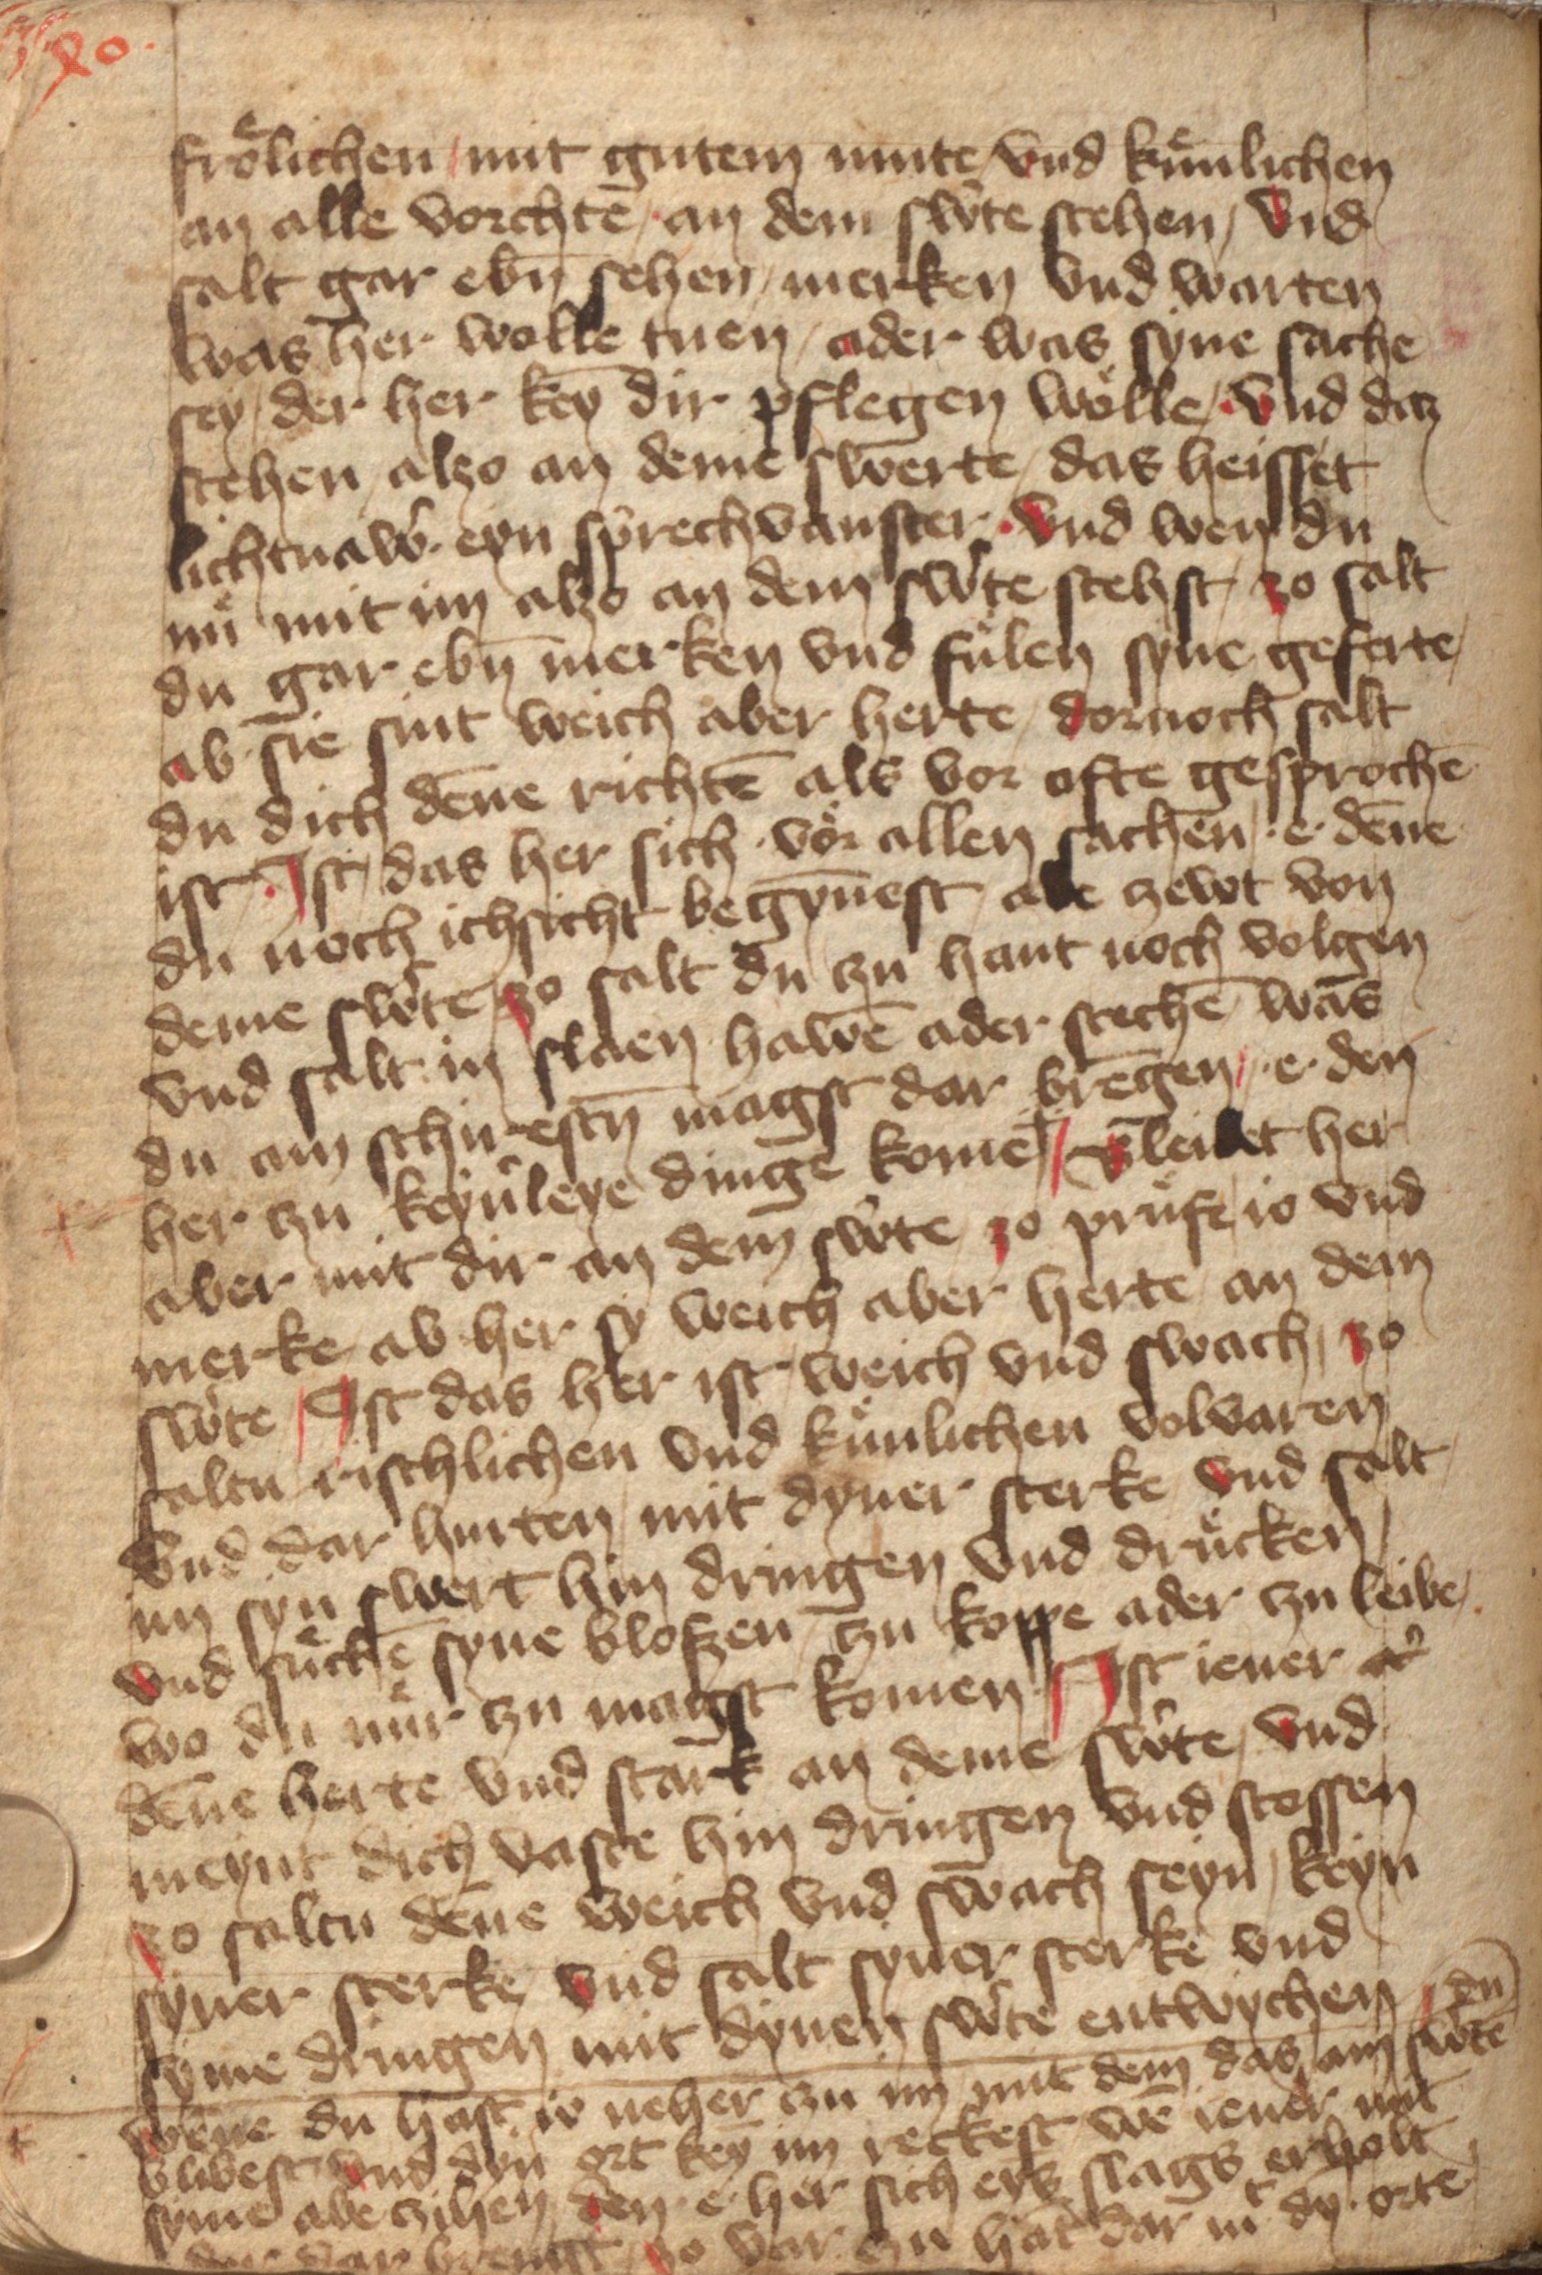 40.
froͤlichen / mit gutem mute / vnd kuͤnlichen
an alle vorchtē / an dem sw̾te stehen / vnd
salt gar ebn̄ sehen / merken vnd warten
was her wolle tuen / ader was syne sache
sey / der her keȳ dir pflegen woͤlle / vnd daz
stehen / alzo an deme swerte / das heisset
lichtnaw̾ · eyn sprechvanster · vnd wen du
nuͤ mit im alzo an dem sw̾te stehst / zo salt
du gar ebn̄ merken vnd fuͤlen syne geferte /
ab sie sint weich aber herte / dornoch salt
du dich den̄e richtē als vor ofte gesprochē
ist · Ist / das her sich · voͤr allen sachen · e · den̄e
du noch ichsicht begȳnest abe zewt von
deme sw̾te / zo salt du zu hant noch volgen
vnd salt in slaen hawē ader stechē was
du am schirestn̄ magst dar brēgen / · e · den
her zu keyn̾leye dinge kome / Bleibet her
aber mit dir an dem sw̾te / zo pruͤfe io vnd
merke / ab her sy weich aber herte / an dem
sw̾te / Ist das her ist / weich vnd swach / zo
saltu rischlichen vnd kuͤnlichen volvaren
vnd dar hurten mit dyner sterke vnd salt
im syn swert hin dringen vnd druͤcken
vnd suͤchē syne blofzen / zu koppe ader zu leibe /
wo du nuͤr zu magst komen / Ist iener
den̄e herte vnd stark an deme sw̾te / vnd
meynt dich vaste hin dringen vnd stossen
zo saltu den̄e weich vnd swach seyn / keyn
syner sterke / vnd salt syner sterke vnd
syme dringen mit dynen sw̾te entwychen / du
wen̄e du hast is neher zu im mit dem das am sw̾te
blibest vnd dyn ort keȳ im reckest wē iener mit
syme abe zihen / den · e · her sich eyns slags erholt
ader dar brengt / zo var zu hāt dar in mit dȳ orte